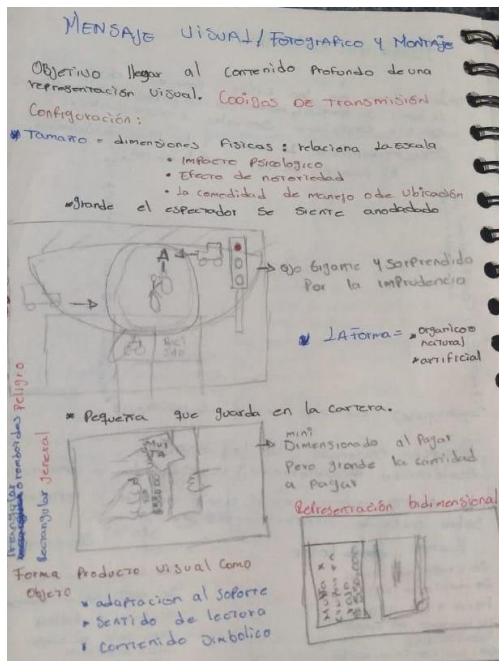 MENSAJE VISUAL / FOTOGRAFICO Y MONTAJE
OBJETIVO llegar al contenido profundo de una
representación visual. CODIGOS DE TRANSMISIÓN
Configuración:
* Tamaño = dimensiones Fisicas: relaciona la escala
• Impacto Psicologico
• Efecto de notoriedad
• la comedidad de manejo o de ubicación
*grande el espectador se siente anodadado
A
→ ojo Gigante y sorprendido
Por la imprudencia
LA Forma = *organico o
natural
*artificial
* Pequeña que guarda en la cartera.
→ mini
Dimensionado al Pagar
Pero grande la cantidad
a Pagar
triangular o romboides Peligro
Rectangular general
Representación bidimensional
Forma Producto visual como
objeto
* adaptacion al soporte
* sentido de lectora
* contenido simbolico